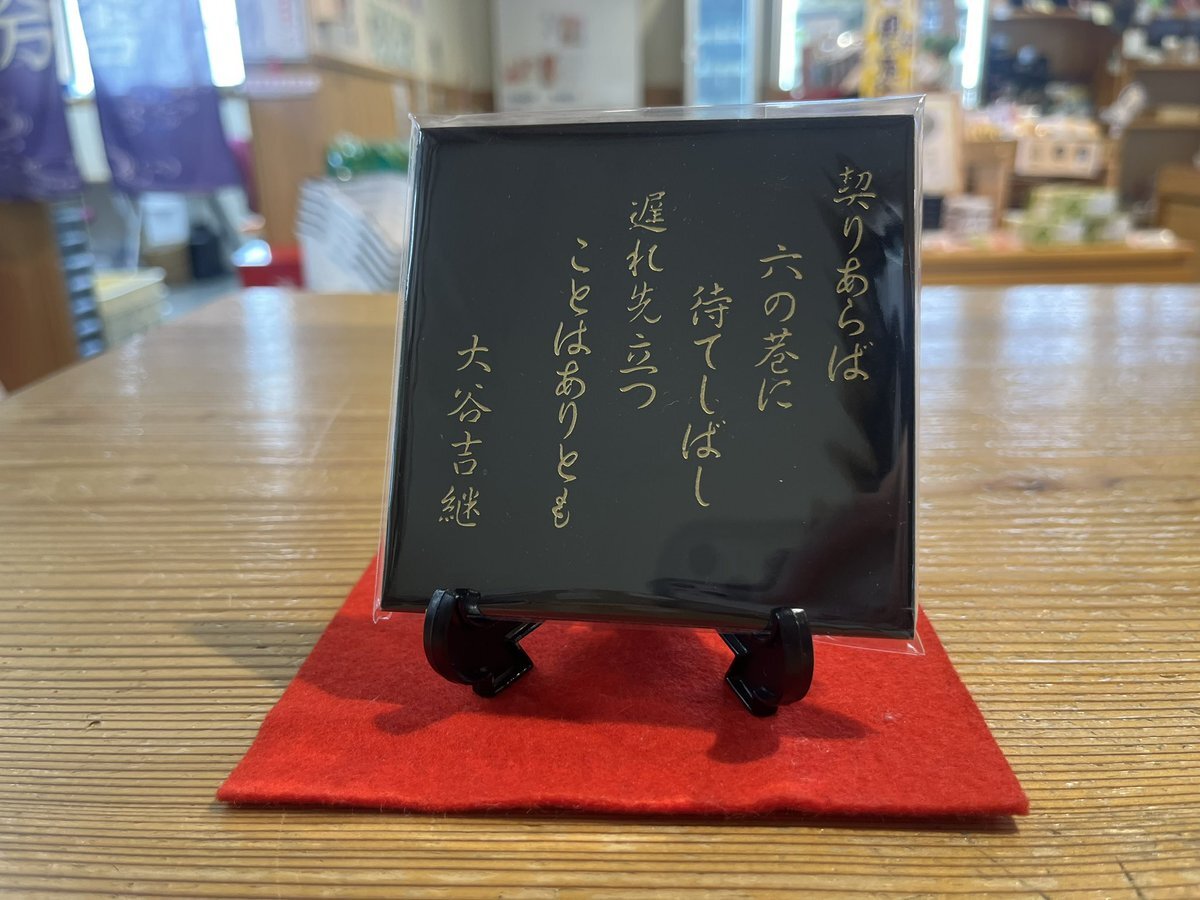 契りあらば
六の巷に
待てしばし
遅れ先立つ
ことはありとも
大谷吉継